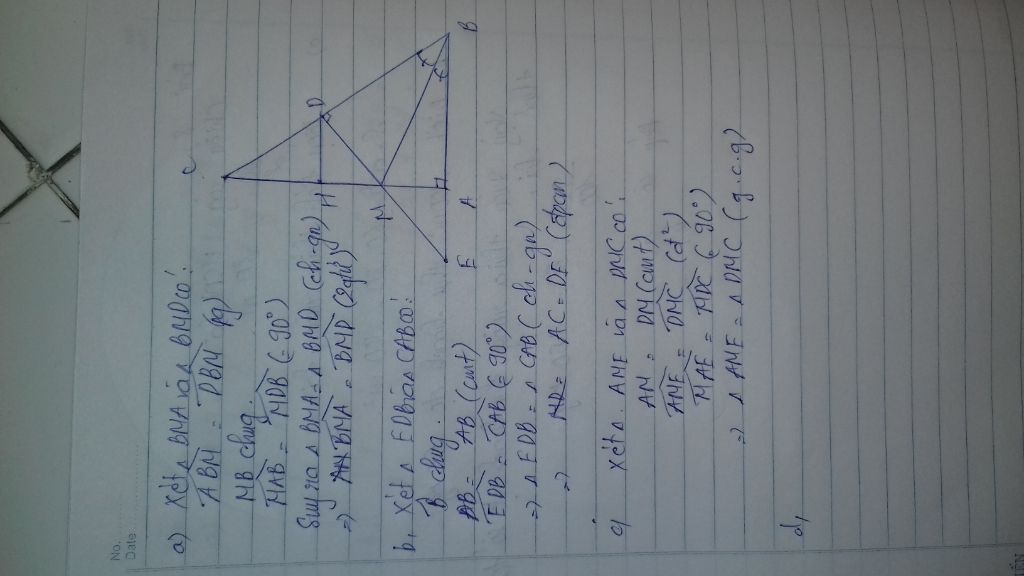 No.
Date
a) Xét Δ BMA và Δ BMD có:
ABM = DBM (pg)
MB chug
MAB = MDB (= 90°)
Suy ra Δ BMA = Δ BMD (ch - gn)
=> BMA = BMD (2gtứ)
b, Xét Δ EDB và Δ CAB có:
B chug
DB = AB (cmt)
EDB = CAB (= 90°)
=> Δ EDB = Δ CAB (ch - gn)
=> AC = DE
c, Xét Δ AME và Δ DMC có:
AM = DM (cmt)
AME = DMC (đ²)
MAE = MDC (= 90°)
=> Δ AME = Δ DMC (g.c.g)
d,
C
D
B
H
M
A
E